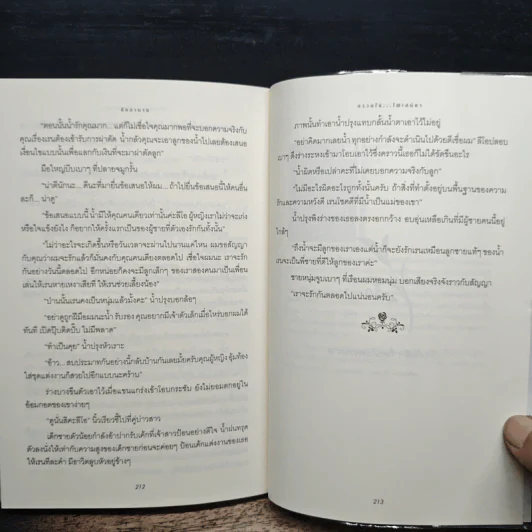 "ตอนนั้นน้ำรักคุณมาก... แต่ก็ไม่เชื่อใจคุณมากพอที่จะบอกความจริงกับ
คุณเรื่องเรนต้องเข้ารับการผ่าตัด น้ำกลัวคุณจะเอาลูกของน้ำไปเลยต้องเสนอ
เงื่อนไขแบบนั้นเพื่อแลกกับเงินที่จะมาผ่าตัดลูก"
มือใหญ่บีบเบาๆ ที่ปลายจมูกรั้น
"น่าตีนักนะ... ดีนะที่มายื่นข้อเสนอให้ผม... ถ้าไปยื่นข้อเสนอนี้ให้คนอื่น
ละก็... น่าดู"
"ข้อเสนอแบบนี้ น้ำมีให้คุณคนเดียวเท่านั้นค่ะลีโอ ผู้หญิงเราไม่ว่าจะเก่ง
หรือใจแข็งยังไง ก็อยากให้ครั้งแรกเป็นของผู้ชายที่ตัวเองรักกันทั้งนั้น"
"ไม่ว่าอะไรจะเกิดขึ้นหรือวันเวลาจะผ่านไปนานแค่ไหน ผมขอสัญญา
กับคุณว่าผมจะรักแล้วก็มั่นคงกับคุณคนเดียวตลอดไป เชื่อใจผมนะ เราจะรัก
กันอย่างวันนี้ตลอดไป อีกหน่อยก็คงจะมีลูกเล็กๆ ของเราสองคนมาเป็นเพื่อน
เล่นให้เรนหายเหงาเสียที ให้เรนช่วยเลี้ยงน้อง"
"ป่านนั้นเรนคงเป็นหนุ่มแล้วมั้งคะ" น้ำปรุงบอกอ้อๆ
"อย่าดูถูกฝีมือผมนะน้ำ รับรอง คุณอยากมีเจ้าตัวเล็กเมื่อไหร่บอกผมได้
ทันที เปิดปุ๊บติดปั๊บ ไม่มีพลาด"
"ทำเป็นคุย" น้ำปรุงหัวเราะ
"อ้าว...สบประมาทกันอย่างนี้กลับบ้านกันเลยมั้ยครับคุณผู้หญิง อุ้มท้อง
ใส่ชุดแต่งงานก็สวยไปอีกแบบนะครับ"
ร่างบางขืนตัวเอาไว้เมื่อแขนแกร่งเข้าโอบกระชับ ยังไม่ยอมตกอยู่ใน
อ้อมกอดของเขาง่ายๆ
"ดูนั่นสิคะลีโอ" นิ้วเรียวชี้ไปที่คู่บ่าวสาว
เด็กชายตัวน้อยกำลังอ้าปากรับเค้กที่เจ้าสาวป้อนอย่างดีใจ น้ำฝนทรุด
ตัวลงนั่งให้เท่ากับความสูงของเด็กชายก่อนจะค่อยๆ ป้อนเค้กแต่งงานของเธอ
ให้เรนทีละคำ มีอาวีตลูบหัวอยู่ข้างๆ
212
ภาพนั้นทำเอาน้ำปรุงแทบกลั้นน้ำตาเอาไว้ไม่อยู่
"อย่าคิดมากเลยน้ำ ทุกอย่างกำลังจะดำเนินไปด้วยดีเชื่อผม" ลีโอปลอบ
เบาๆ ดึงร่างระหงเข้ามาโอบเอาไว้ซึ่งคราวนี้เธอก็ไม่ได้ขัดขืนอะไร
"น้ำผิดหรือเปล่าคะที่ไม่เคยบอกความจริงกับลูก"
"ไม่มีอะไรผิดอะไรถูกทั้งนั้นครับ ถ้าสิ่งที่ทำตั้งอยู่บนพื้นฐานของความ
รักและความหวังดี เรนโชคดีที่มีน้ำเป็นแม่ของเขา"
น้ำปรุงพิงร่างของเธอลงตรงอกกว้าง อบอุ่นเหลือเกินที่มีผู้ชายคนนี้อยู่
ใกล้ๆ
"ถึงน้ำจะมีลูกของเราเองแต่น้ำก็จะยังรักเรนเหมือนลูกชายแท้ๆ ของน้ำ
เรนจะเป็นพี่ชายที่ดีให้ลูกของเราค่ะ"
ชายหนุ่มจูบเบาๆ ที่เรือนผมหอมนุ่ม บอกเสียงจริงจังราวกับสัญญา
"เราจะรักกันตลอดไปแน่นอนครับ"
213